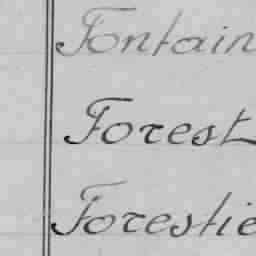 Fontain
Forest
Forestie